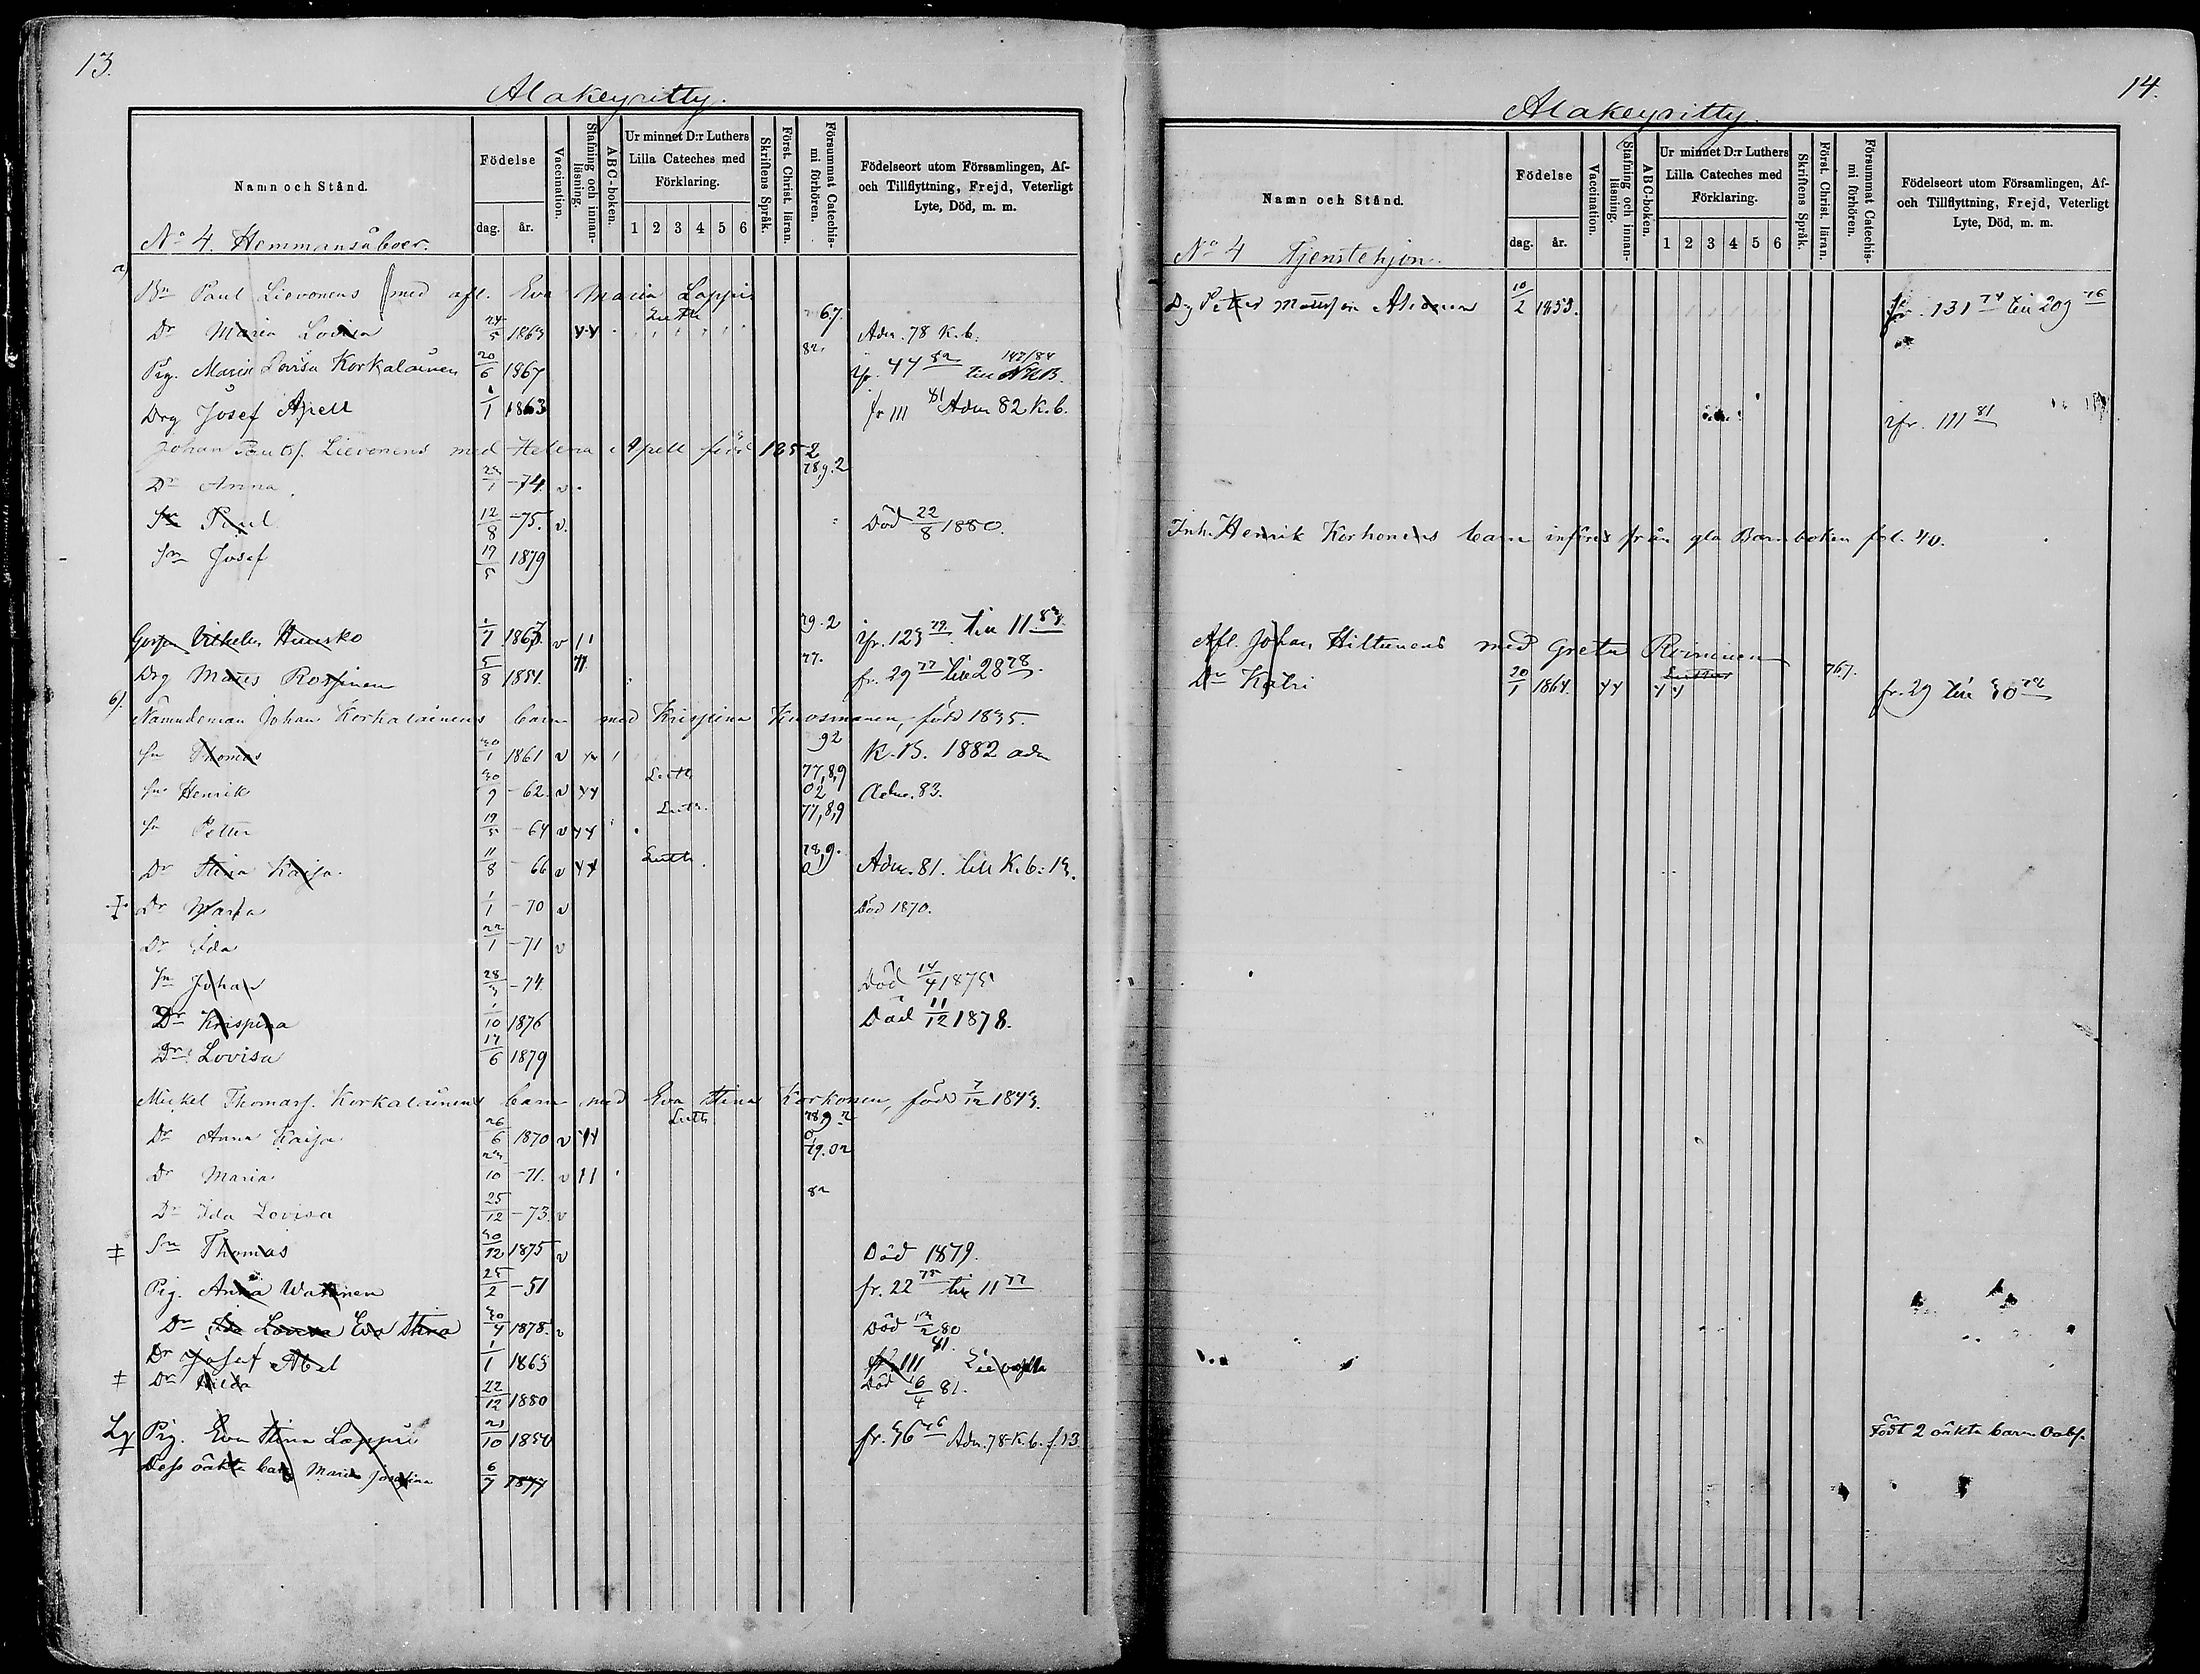 13.
Alakeyritty.
Namn och Stånd.
Födelse
dag. år.
Vaccination.
Stafning och innanläsning.
ABC-boken.
Ur minnet D:r Luthers Lilla Cateches med Förklaring.
1 2 3 4 5 6
Skriftens Språk.
Först. Christ. läran.
Försummat Catechismi förhören.
Födelseort utom Församlingen, Af- och Tillflyttning, Frejd, Veterligt Lyte, Död, m. m.
No 4. Hemmansåboer.
a) Bn Paul Lievonens med afl. Eva Maria Lappi
Dr Maria Lovisa 24/5 1863 Luth 67. Adm. 78 K.b.
Pig. Maria Lovisa Korkalainen 20/6 1867 82 fr. 44 82 till 142/84
Drg Josef Apell 1/1 1863 fr 111 81 Adm 82 K.b.
Johan Paulsf. Lievonens med Helena Apell född 1852
Dr Anna -74. v 78,9.2
Sn Paul 12/8 -75. v. Död 22/8 1880.
Sn Josef 19/5 1879
Vilhelm v 79.2 fr. 123 79 till 11 83
Drg Mates Rossinen 5/8 1851. 77. fr. 29 77 till 28 78.
b). Nämndeman Johan Korkalainens barn med Krispina Kuosmanen, född 1835.
Sn Thomas 30/1 1861 v 92 K.B. 1882 adm
Sn Henrik 30/9 -62. v Luth 77,8,9 02 Adm. 83.
Sn Petter 19/5 -64 v Luth. 77,8,9
Dr Stina Kaisa. 11/8 66 v Luth. 78,9. 0 Adm. 81. till K.b: 13.
Dr Maria 1/1 -70 v Död 1870.
Dr Ida 22/1 -71 v
Sn Johan 28/3 -74. Död 14/4 1875
Dr Krispina 1/10 1876 Död 11/12 1878.
Dr Lovisa 17/6 1879
Mickel Thomasf. Korkalainens barn med Eva Stina Korkonen, född 7/12 1843.
Dr Anna Kaisa 26/6 1870 v Luth. 78,9 2 0
Dr Maria 23/10 -71. v 79.02
Dr Ida Lovisa 25/12 -73. v 82
Sn Thomas 30/12 1875 v Död 1879.
Pig. Anna Watanen 25/2 -51 fr. 22 75 till 11 77
Dr Ida Lovisa Eva Stina 30/4 1878. v Död 12/2 80
Dr Josef Abel 1/1 1863 fr. 111 81.
Dr Hilda 22/12 1880 Död 6/4 81.
Pig. Eva Stina Lappi 21/10 1850 fr. 36 76 Adm. 78 K.b. f.13
Dess oäkta barn Maria Josefina 6/7 1877
14.
Alakeyritty.
Namn och Stånd.
Födelse
dag. år.
Vaccination.
Stafning och innanläsning.
ABC-boken.
Ur minnet D:r Luthers Lilla Cateches med Förklaring.
1 2 3 4 5 6
Skriftens Språk.
Först. Christ. läran.
Försummat Catechismi förhören.
Födelseort utom Församlingen, Af- och Tillflyttning, Frejd, Veterligt Lyte, Död, m. m.
No 4 Tjenstehjon.
Drg Petter 10/2 1853. fr. 131 74 till 209 76
fr. 111 81
Inh. Henrik Korhonens barn införes från gla Barnboken fol. 40.
Afl. Johan Hiltunens med Greta Roininen
Dr Katri 20/1 1864. Luther 767. fr. 29 till 30 76
Födt 2 oäkta barn